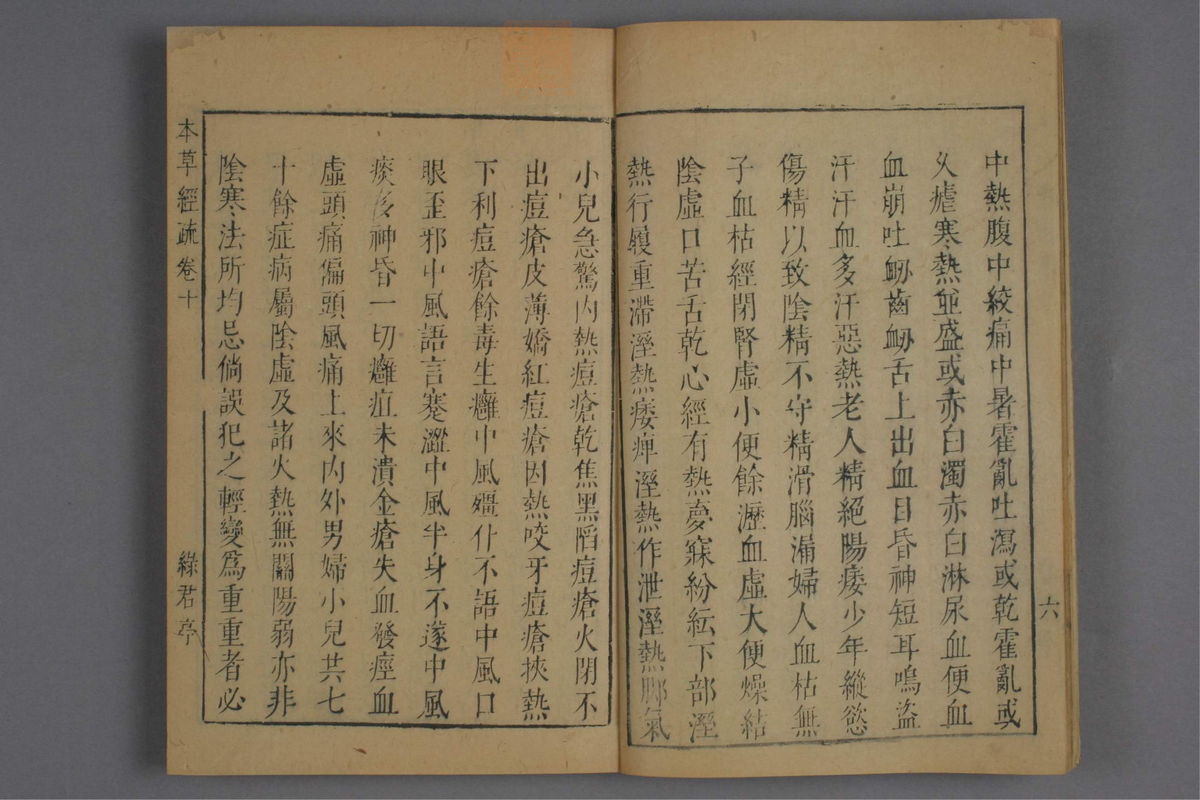 中熱腹中絞痛中暑霍亂吐瀉或乾霍亂或
久瘧寒熱並盛或赤白濁赤白淋尿血便血
血崩吐衂齒衂舌上出血目昏神短耳鳴盜
汗汗血多汗惡熱老人精絕陽痿少年縱慾
傷精以致陰精不守精滑腦漏婦人血枯無
子血枯經閉腎虛小便餘瀝血虛大便燥結
陰虛口苦舌乾心經有熱夢寐紛紜下部溼
熱行履重滯溼熱痿痺溼熱作泄溼熱脚氣
六
小兒急驚內熱痘瘡乾焦黑陷痘瘡火閉不
出痘瘡皮薄嬌紅痘瘡因熱咬牙痘瘡挾熱
下利痘瘡餘毒生癰中風殭仆不語中風口
眼歪邪中風語言蹇澀中風半身不遂中風
痰多神昏一切癰疽未潰金瘡失血發痙血
虛頭痛偏頭風痛上來內外男婦小兒共七
十餘症病屬陰虛及諸火熱無關陽弱亦非
陰寒法所均忌倘誤犯之輕變爲重重者必
本草經疏卷十
綠君亭